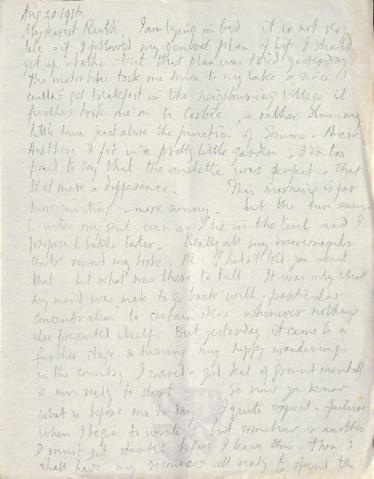 Aug 30 1916
My dearest Ruth, I am lying in bed it is not very
late - if I followed my general plan of life I should
get up & bathe - but that plan was tried yesterday
The motorbike took me down to my lake & since I
couldn't get breakfast in the neighbouring village it
further took me on to Corbie, a rather
little town just above the junction of Somme & Ancre
And there I fed in a pretty little garden, I'm too
proud to say that the omelette was perfect, & that
that made a difference. This morning is far
more inviting & more sunny. but the sun seems
to my soul even as I lie in the tent and I
propose to bathe later. Really all my movements
centre round my book. Ah! I hadn't told you about
that - but what was there to tell? It was only that
my mind was to go back with particular
concentration to certain ideas whenever nothing
else presented itself. But yesterday it came to a
further stage & during my happy wanderings
in the country I covered a good deal of ground mentally
& am ready to start. So now you know
what is before me today. I quite expect failure
when I begin to write but somehow or another
I must get started before I leave this. Then I
shall have my resources all ready to spend the